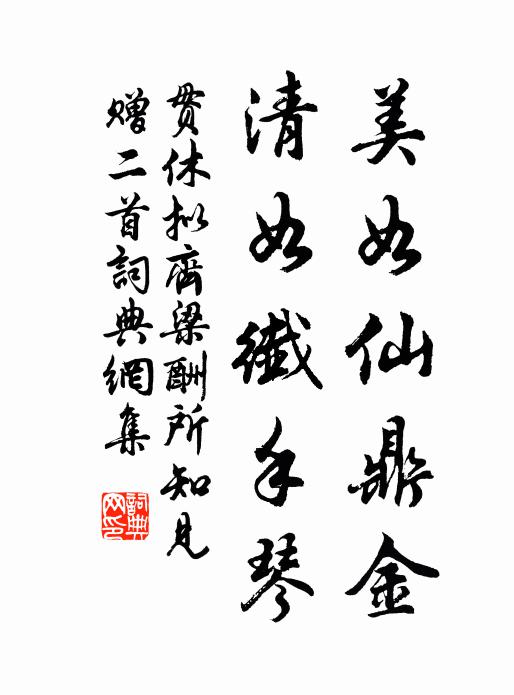 美如仙鼎金
清如纖手琴
貫休拟齊梁酬所知見
贈二首詞典網集
詞典
网印